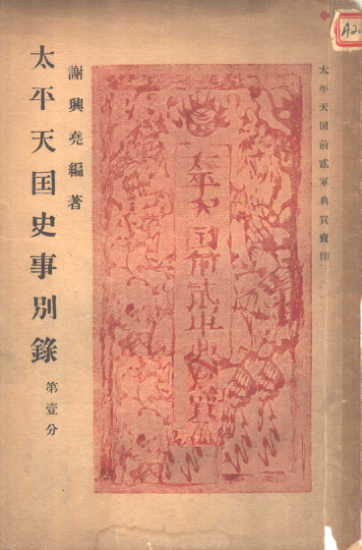 太平天囯前貳軍典買賣印
太平天囯前貳軍典買賣
謝興堯編著
太平天囯史事別錄
第壹分